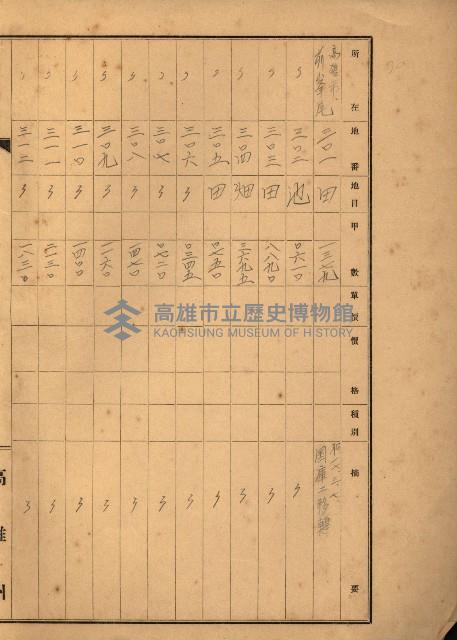 所在 地番 地目 甲數 單價 價格 種別 摘要
高雄市前峯尾 三〇一 田 一三一九 昭一八、三、七、国庫ニ移轉
〃 三〇二 池 〇六一〇 〃
〃 三〇三 田 八八九〇 〃
〃 三〇四 畑 三六九五 〃
〃 三〇五 田 〇七五〇 〃
〃 三〇六 〃 〇三四五 〃
〃 三〇七 〃 〇七二〇 〃
〃 三〇八 〃 一四七〇 〃
〃 三〇九 〃 一一六〇 〃
〃 三一〇 〃 一四〇〇 〃
〃 三一一 〃 二一三〇 〃
〃 三一二 〃 一八三〇 〃
高雄州
高雄市立歷史博物館
KAOHSIUNG MUSEUM OF HISTORY